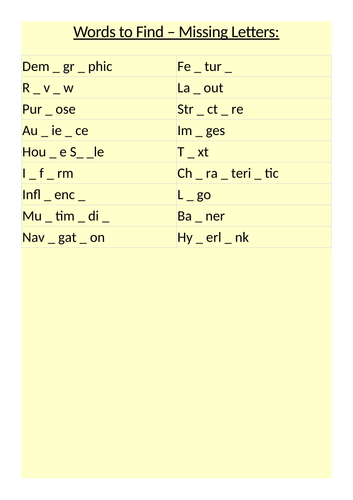 Words to Find – Missing Letters:
Dem _ gr _ phic Fe _ tur _
R _ v _ w La _ out
Pur _ ose Str _ ct _ re
Au _ ie _ ce Im _ ges
Hou _ e S_ _le T _ xt
I _ f _ rm Ch _ ra _ teri _ tic
Infl _ enc _ L _ go
Mu _ tim _ di _ Ba _ ner
Nav _ gat _ on Hy _ erl _ nk